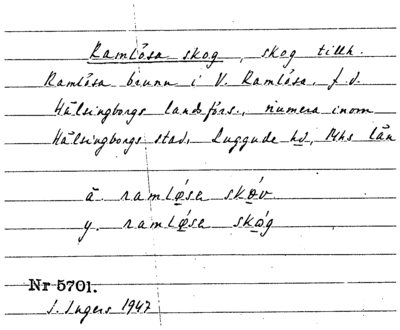 Ramlösa skog, skog tillh.
Ramlösa brunn i V. Ramlösa, f.d.
Hälsingborgs landsförs., numera inom
Hälsingborgs stad, Luggude hd, Mhs län
ä. ramløsa skøv
y. ramløsa skøg
Nr 5701.
I. Ingers 1947